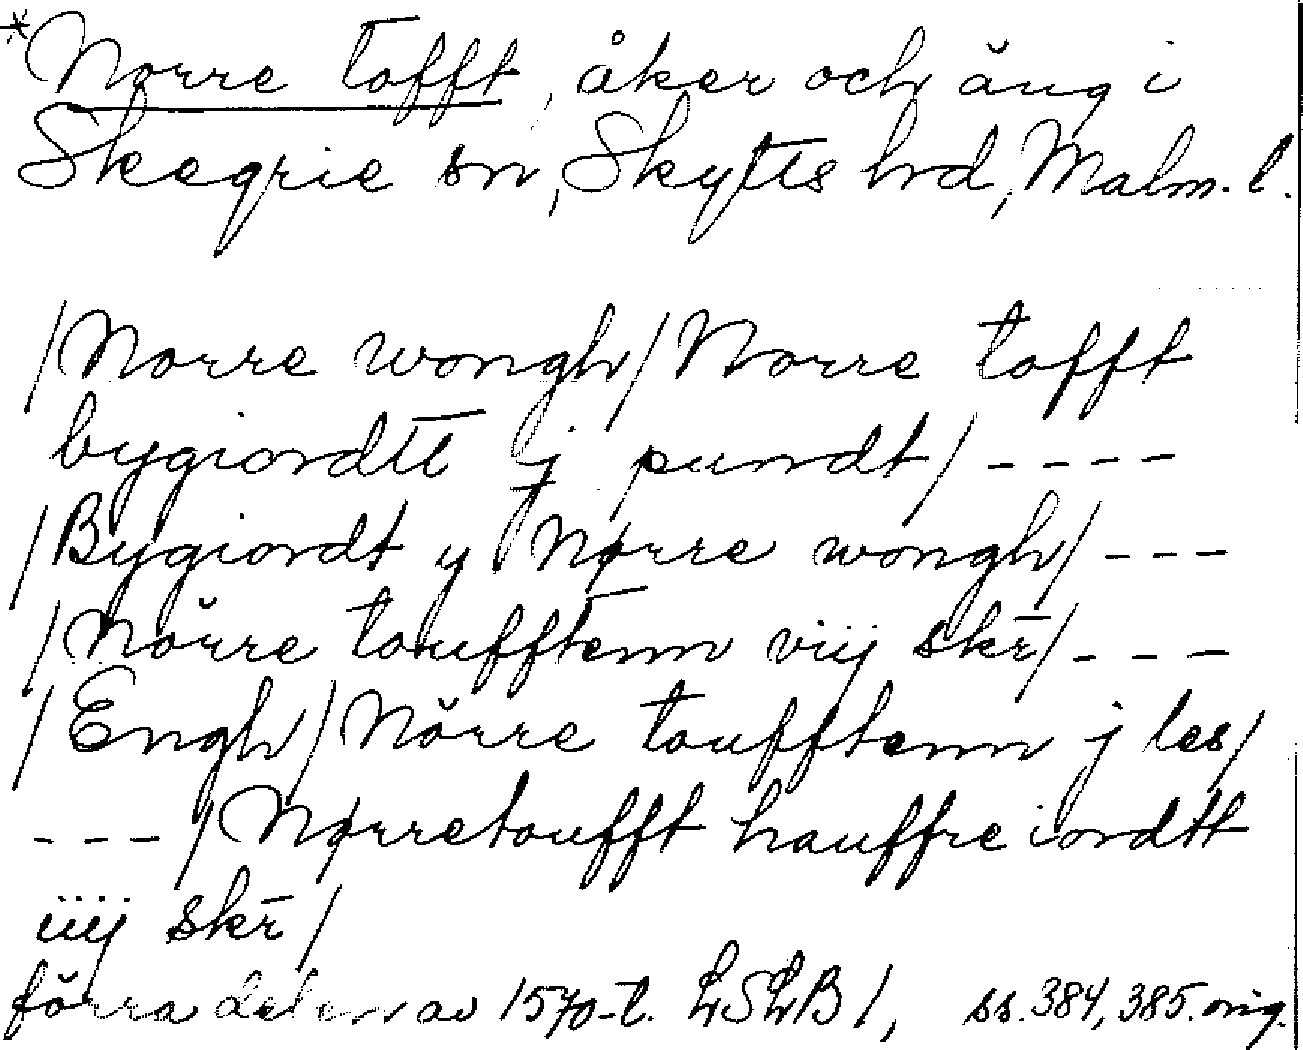 *Norre tofft, åker och äng i
Skegrie sn, Skytts hd, Malm. l.
/Norre wongh/ Norre tofft
bygiordtt j pundt/ ----
/Bygiordt y Nørre wongh/ ---
/Nörre toufftenn viij skr̄/ ---
/Engh/ Nörre toufftenn j les/
--- / Nørretoufft hauffre iordtt
iiij skr̄/
förra delen av 1570-t. LSLB 1, ss. 384, 385. orig.